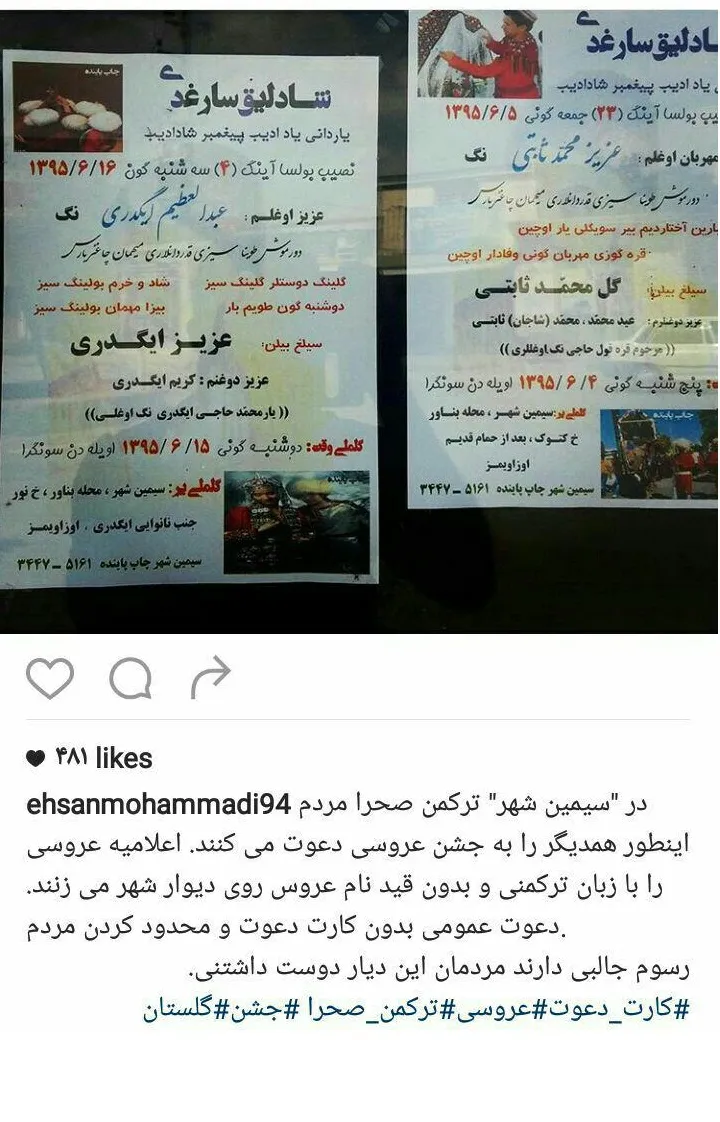 چاپ پاینده
شادلیق سارغدی
یاردانی یاد ادیب پیغمبر شادادیب
نصیب بولسا آینگ (۴) سه شنبه گون ۱۳۹۵/۶/۱۶
عزیز اوغلم: عبدالعظیم ایگدری نگ
دورموش طوینا سیزی قدردانلاری میهمان چاغتریارس
گلینگ دوستلر گلینگ سیز شاد و خرم بولینگ سیز
دوشنبه گون طویم بار بیزا مهمان بولینگ سیز
سیلغ بیلن: عزیز ایگدری
عزیز دوغنم: کریم ایگدری
((یارمحمد حاجی ایگدری نگ اوغلی))
گلملی وقت: دوشنبه گونی ۱۳۹۵/۶/۱۵ اویله دن سونگرا
گلملی یر: سیمین شهر، محله بناور، خ نور
جنب نانوایی ایگدری، اوزاویمز
سیمین شهر چاپ پاینده ۵۱۶۱ – ۳۴۴۷
شادلیق سارغدی
یاد ادیب پیغمبر شادادیب
یب بولسا آینگ (۲۳) جمعه گونی ۱۳۹۵/۶/۵
مهربان اوغلم: عزیز محمد ثابتی نگ
دورموش طوینا سیزی قدردانلاری میهمان چاغتریارس
یارین آختاردیم بیر سویگلی یار اوچین
قره گوزی مهربان گونی وفادار اوچین
سیلغ بیلن: گل محمّد ثابتی
عزیز دوغنلرم: عید محمّد، محمّد (شاجان) ثابتی
((مرحوم قره قول حاجی نگ اوغللری))
: پنج شنبه گونی ۱۳۹۵/۶/۴ اویله دن سونگرا
گلملی یر: سیمین شهر، محله بناور
خ کتوک، بعد از حمام قدیم
اوزاویمز
سیمین شهر چاپ پاینده ۵۱۶۱ – ۳۴۴۷
چاپ پاینده
۴۸۱ likes
ehsanmohammadi94 در "سیمین شهر" ترکمن صحرا مردم
اینطور همدیگر را به جشن عروسی دعوت می کنند. اعلامیه عروسی
را با زبان ترکمنی و بدون قید نام عروس روی دیوار شهر می زنند.
دعوت عمومی بدون کارت دعوت و محدود کردن مردم.
رسوم جالبی دارند مردمان این دیار دوست داشتنی.
#کارت_دعوت#عروسی#ترکمن_صحرا #جشن#گلستان